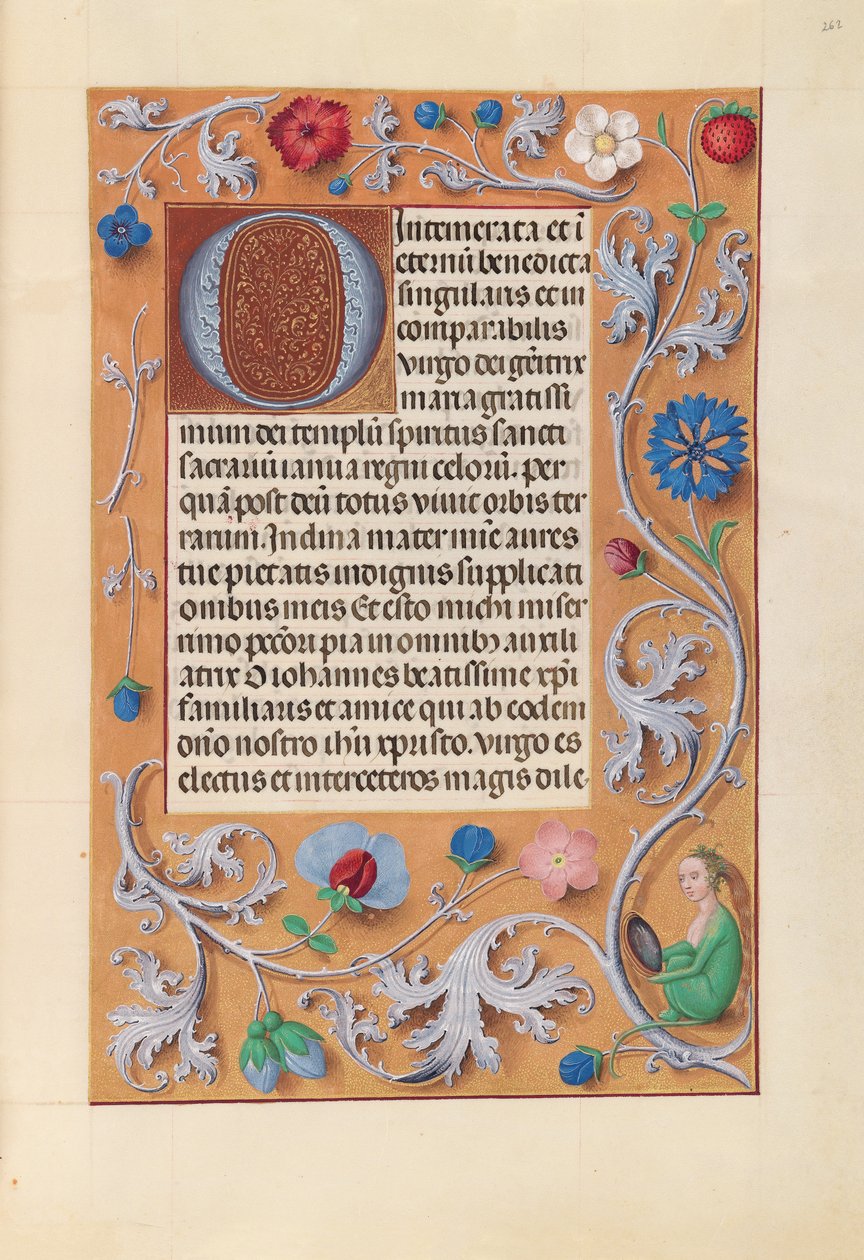 262
O Intemerata et ī
eternū benedicta
singularis et in
comparabilis
virgo dei gēitrix
maria gratissi
mum dei templū spiritus sancti
sacrariū ianua regni celorū. per
quā post deū totus vivit orbis ter
rarum. Inclina mater mīe aures
tue pietatis indignis supplicati
onibus meis Et esto michi miser
rimo pecc̄ori pia in omnibꝫ auxili
atrix O iohannes beatissime xp̄i
familiaris et amice qui ab eodem
dn̄o nostro ih̄u xpristo. virgo es
electus et inter ceteros magis dile-